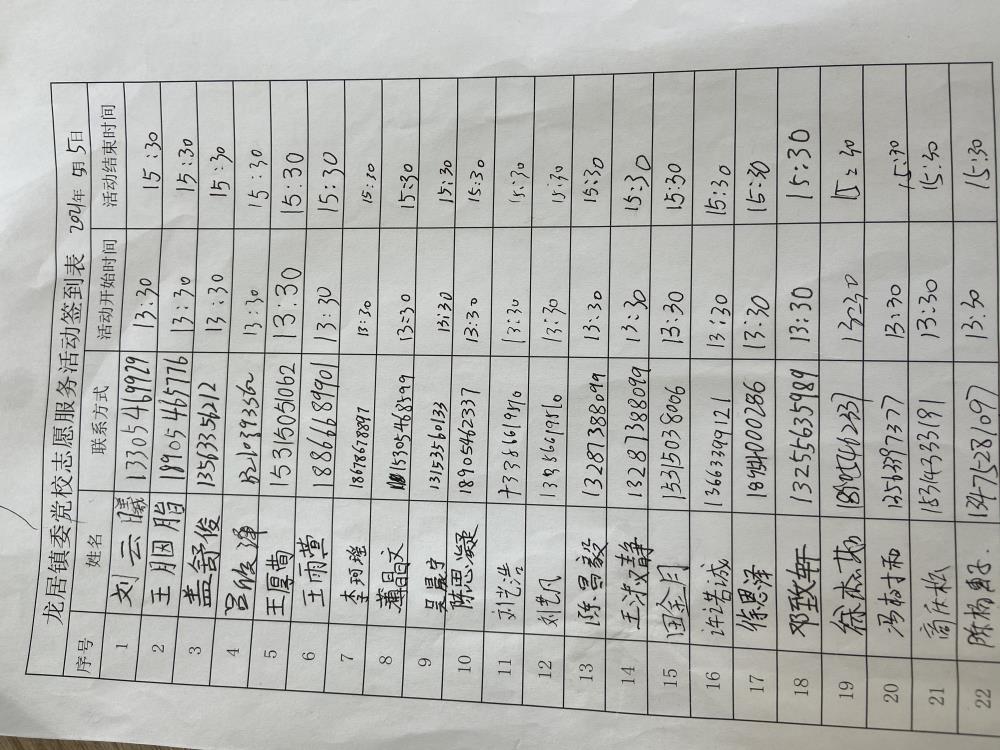 龙居镇委党校志愿服务活动签到表 2021年 5月5日
序号 姓名 联系方式 活动开始时间 活动结束时间
1 刘云曦 13305469929 13:30 15:30
2 王胭脂 18905465776 13:30 15:30
3 盖舒俊 13563356212 13:30 15:30
4 13:30 15:30
5 王厚普 15315051062 13:30 15:30
6 王雨萱 18866689901 13:30 15:30
7 李珂瑶 18678678887 13:30 15:30
8 15305468599 13:30 15:30
9 吴晨宁 13153560133 13:30 15:30
10 陈思凝 18905462337 13:30 15:30
11 刘艺浩 13:30 15:30
12 刘艺凡 13:30 15:30
13 陈昌毅 13287388099 13:30 15:30
14 王汉静 13287388099 13:30 15:30
15 田金月 15315038006 13:30 15:30
16 许诺诚 13663399121 13:30 15:30
17 徐思泽 13:30 15:30
18 邓致年 13255635989 13:30 15:30
19 13:30 15:30
20 13:30 15:30
21 高庆松 13:30 15:30
22 13475281097 13:30 15:30